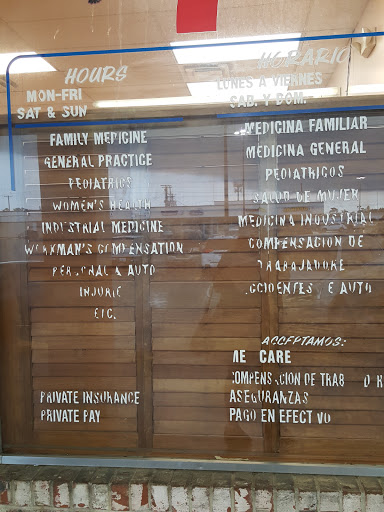 HOURS
MON-FRI
SAT & SUN
FAMILY MEDICINE
GENERAL PRACTICE
PEDIATRICS
WOMEN'S HEALTH
INDUSTRIAL MEDICINE
WORKMAN'S COMPENSATION
PERSONAL & AUTO
INJURIE
ETC.
PRIVATE INSURANCE
PRIVATE PAY
HORARIO
LUNES A VIERNES
SAB. Y DOM.
MEDICINA FAMILIAR
MEDICINA GENERAL
PEDIATRICOS
SALUD DE MUJER
MEDICINA INDUSTRIAL
COMPENSACION DE
TRABAJADORE
CCIDENTES E AUTO
ACCEPTAMOS:
ME CARE
COMPENSACION DE TRAB
ASEGURANZAS
PAGO EN EFECTIVO